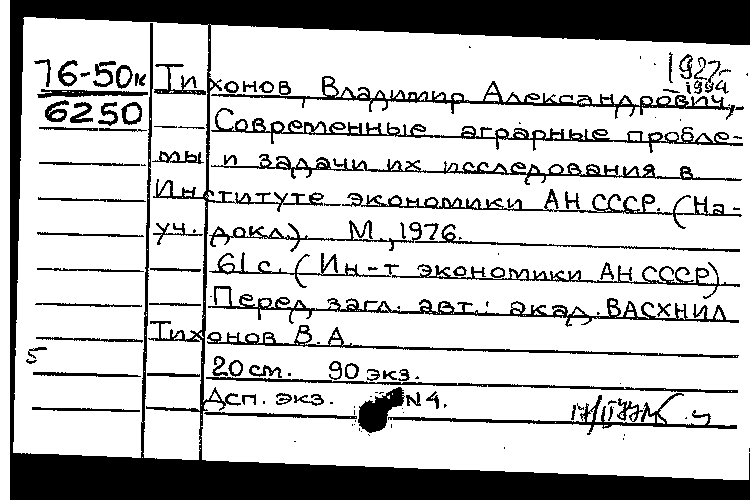 1927-
1994
76-50к Тихонов, Владимир Александрович,-
6250 Современные аграрные пробле-
мы и задачи их исследования в
Институте экономики АН СССР. (На-
уч. докл.). М., 1976.
61 с. (Ин-т экономики АН СССР)
Перед загл. авт.: акад. ВАСХНИЛ
Тихонов В. А.
5
20 см. 90 экз.
Дсп. экз. N 4.